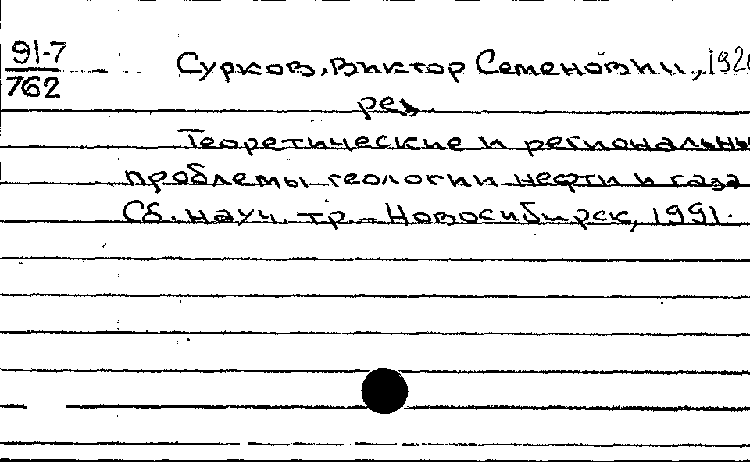 91-7
762
Сурков, Виктор Семенович, 192
ред.
Теоретические и региональны
проблемы геологии нефти и газа
Сб. науч. тр. - Новосибирск, 1991.